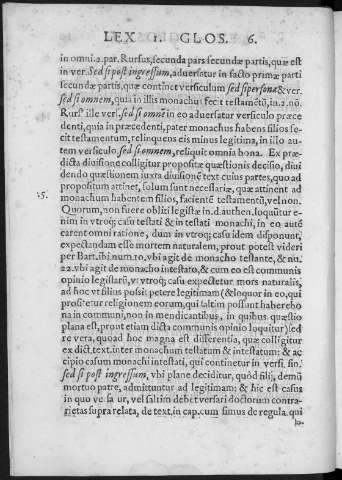 LEX 1. GLOS. 6.
in omni. 2. par. Rursus, secunda pars secundæ partis, quæ est
in ver. Sed si post ingressum, aduersatur in facto primæ parti
secundæ partis, quæ continet versiculum sed si persona & ver.
sed si omnem, quia in illis monachus fecit testamẽtũ, in. 2. nõ.
Rurs⁹ ille ver. sed si omnẽ in eo aduersatur versiculo præce
denti, quia in præcedenti, pater monachus habens filios fe-
cit testamentum, relinquens eis minus legitima, in illo au-
tem versiculo sed si omnem, reliquit omnia bona. Ex præ-
dicta diuisione colligitur propositæ quæstionis decisio, diui
dendo quæstionem iuxta diuisionẽ text. cuius partes, quo ad
propositum attinet, solum sunt necessariæ, quæ attinent ad
monachum habentem filios, faciente testamentũ, vel non.
15. Quorum, non fuere obliti legistæ in. d. authen. loquũtur e-
nim in vtroq; casu testati & intestati monachi, in eo autẽ
carent omni ratione, dum in vtroq; casu idem disponunt,
expectandam esse mortem naturalem, prout potest videri
per Bart. ibi. num. 10. vbi agit de monacho testante, & nu.
22. vbi agit de monacho intestato, & cum eo est communis
opinio legistarũ, vt vtroq; casu expectetur mors naturalis,
ad hoc vt filius possit petere legitimam (& loquor in eo, qui
profitetur religionem eorum, qui saltim possunt habere bo
na in communi, non in mendicantibus, in quibus quæstio
plana est, prout etiam dicta communis opinio loquitur) sed
re vera, quoad hoc magna est differentia, quæ colligitur
ex dict. text. inter monachum testatum & intestatum: & ac
cipio casum monachi intestati, qui continetur in versi. sin.
sed si post ingressum, vbi plane deciditur, quòd filij, demũ
mortuo patre, admittuntur ad legitimam: & hic est casus
in quo vera sur, vel saltim debet versari doctorum contra-
rietas supra relata, de text. in cap. cum simus de regula. qui